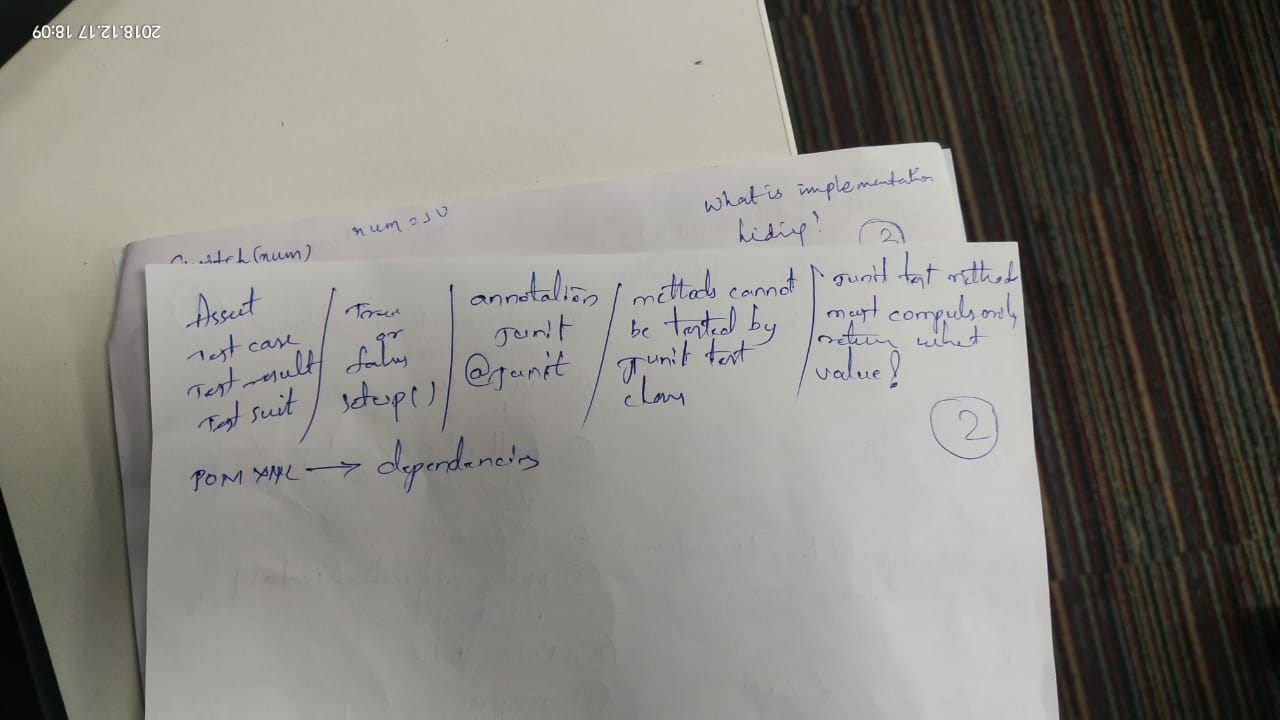 2018.12.17 18:09
num=10
What is implementation
hiding?
2
Switch(num)
Assert
Test case
Test result
Test suit
True
or
false
setup()
annotation
Junit
@Junit
methods cannot
be tested by
Junit test
class
Junit test method
must compulsorily
return what
value?
2
POM XML → dependencies